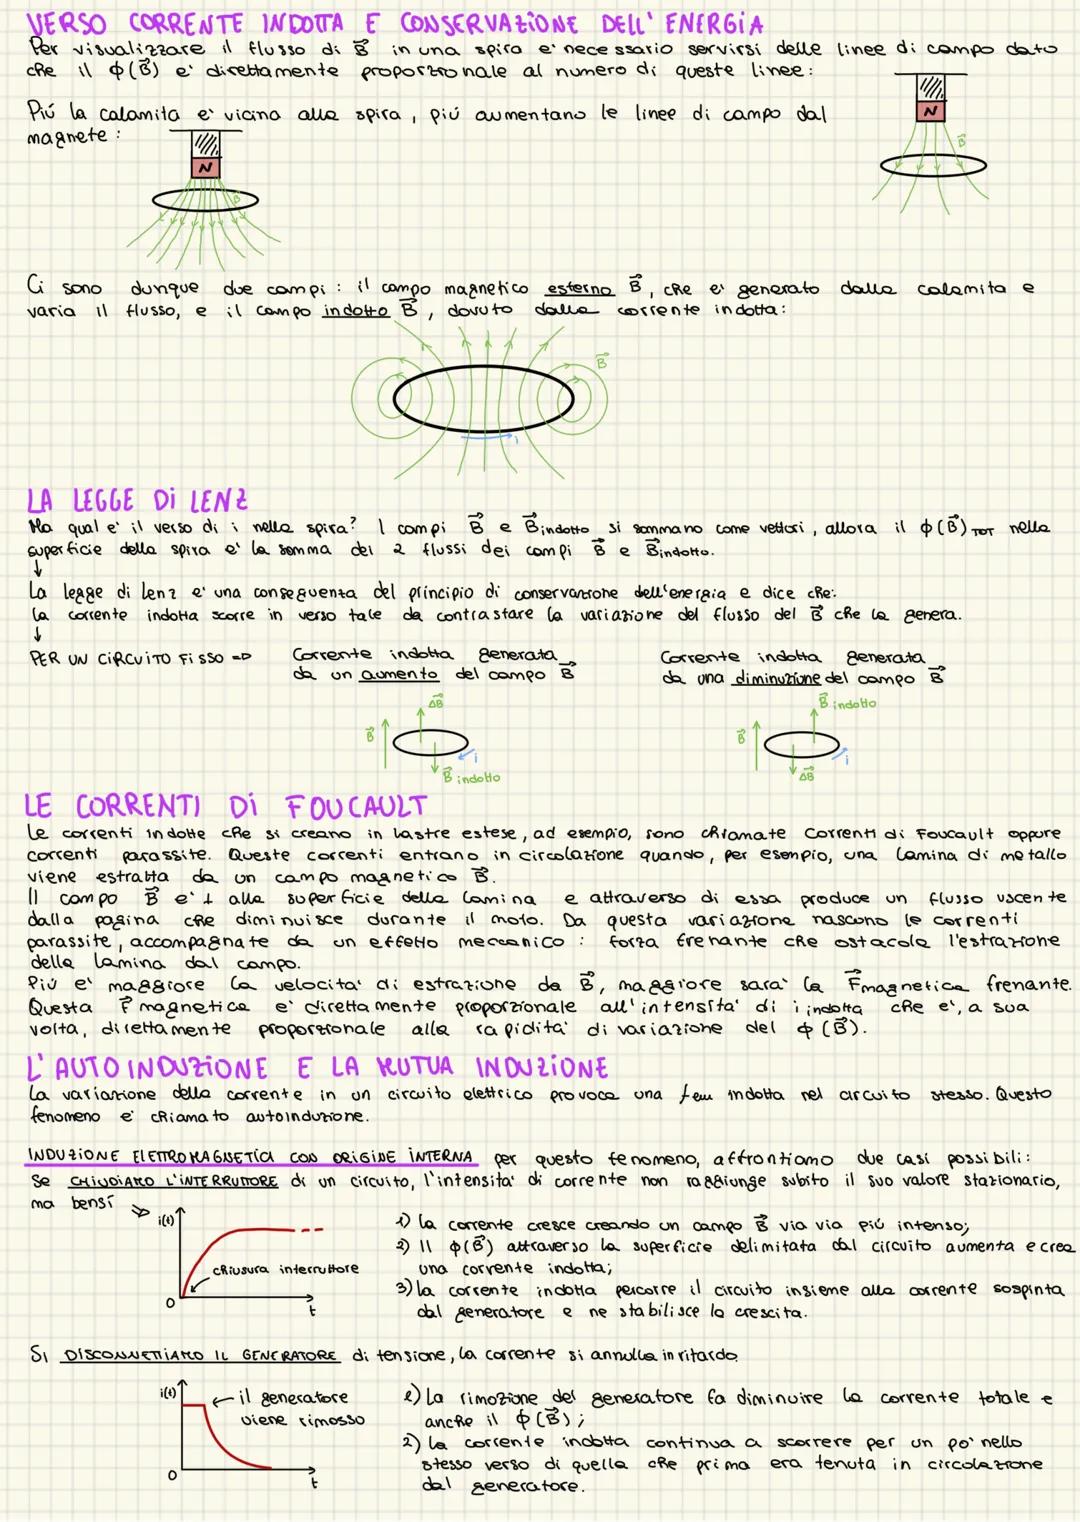 VERSO CORRENTE INDOTTA E CONSERVAZIONE DELL'ENERGIA
Per visualizzare il flusso di B⃗ in una spira e' necessario servirsi delle linee di campo dato
che il ϕ(B⃗) e' direttamente proporzionale al numero di queste linee:
Piú la calamita e' vicina alla spira, piú aumentano le linee di campo dal
magnete:
N
B⃗
N
B⃗
Ci sono dunque due campi: il campo magnetico esterno B⃗, che e' generato dalla calamita e
varia il flusso, e il campo indotto B⃗, dovuto dalla corrente indotta:
B⃗
i
LA LEGGE Di LENZ
Ma qual e' il verso di i nella spira? I campi B⃗ e B⃗indotto si sommano come vettori, allora il ϕ(B⃗)TOT nella
superficie della spira e' la somma dei 2 flussi dei campi B⃗ e B⃗indotto.
↓
La legge di Lenz e' una conseguenza del principio di conservazione dell'energia e dice che:
la corrente indotta scorre in verso tale da contrastare la variazione del flusso del B⃗ che la genera.
↓
PER UN CIRCUITO FISSO => Corrente indotta generata Corrente indotta generata
da un aumento del campo B⃗ da una diminuzione del campo B⃗
B⃗ ΔB⃗ i B⃗ indotto
B⃗ B⃗ indotto i ΔB⃗
LE CORRENTI Di FOUCAULT
Le correnti indotte che si creano in lastre estese, ad esempio, sono chiamate Correnti di Foucault oppure
correnti parassite. Queste correnti entrano in circolazione quando, per esempio, una lamina di metallo
viene estratta da un campo magnetico B⃗.
Il campo B⃗ e' ⊥ alla superficie della lamina e attraverso di essa produce un flusso uscente
dalla pagina che diminuisce durante il moto. Da questa variazione nascono le correnti
parassite, accompagnate da un effetto meccanico: forza frenante che ostacola l'estrazione
della lamina dal campo.
Piú e' maggiore la velocita' di estrazione da B⃗, maggiore sara' la F⃗magnetica frenante.
Questa F⃗ magnetica e' direttamente proporzionale all'intensita' di i indotta che e', a sua
volta, direttamente proporzionale alla rapidita' di variazione del ϕ(B⃗).
L'AUTOINDUZIONE E LA MUTUA INDUZIONE
La variazione della corrente in un circuito elettrico provoca una fem indotta nel circuito stesso. Questo
fenomeno e' chiamato autoinduzione.
INDUZIONE ELETTROMAGNETICA CON ORIGINE INTERNA per questo fenomeno, affrontiamo due casi possibili:
Se CHIUDIAMO L'INTERRUTTORE di un circuito, l'intensita' di corrente non raggiunge subito il suo valore stazionario,
ma bensí
i(t)
chiusura interruttore
0
t
1) la corrente cresce creando un campo B⃗ via via piú intenso;
2) Il ϕ(B⃗) attraverso la superficie delimitata dal circuito aumenta e crea
una corrente indotta;
3) la corrente indotta percorre il circuito insieme alla corrente sospinta
dal generatore e ne stabilisce la crescita.
Si DISCONNETTIAMO IL GENERATORE di tensione, la corrente si annulla in ritardo.
i(t)
il generatore
viene rimosso
0
t
1) La rimozione del generatore fa diminuire la corrente totale e
anche il ϕ(B⃗);
2) la corrente indotta continua a scorrere per un po' nello
stesso verso di quella che prima era tenuta in circolazione
dal generatore.